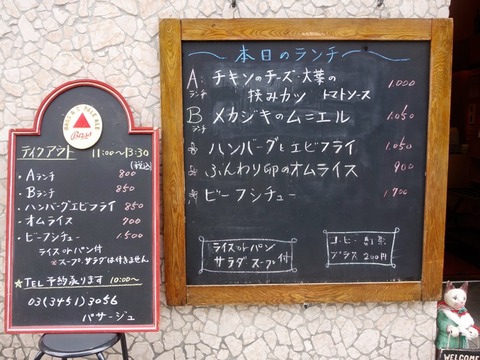 本日のランチ
Aランチ チキンのチーズ・大葉の 1,000
挟みカツ トマトソース
Bランチ メカジキのムニエル 1,050
ハンバーグとエビフライ 1,050
ふんわり卵のオムライス 900
ビーフシチュー 1,700
ライスorパン
サラダ スープ付
コーヒー 紅茶
プラス 200円
BASS & CO'S PALE ALE
Bass
テイクアウト 11:00〜13:30
(税込)
・Aランチ 800
・Bランチ 850
・ハンバーグエビフライ 850
・オムライス 700
・ビーフシチュー 1500
ライスorパン付
※スープ、サラダは付きません
★TEL予約承ります 10:00〜
03(3451)3056
パサージュ
WELCOME